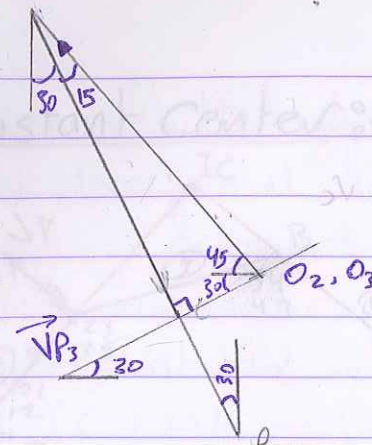 30 15
45
30
O₂, O₃
VP₃
30
30
P